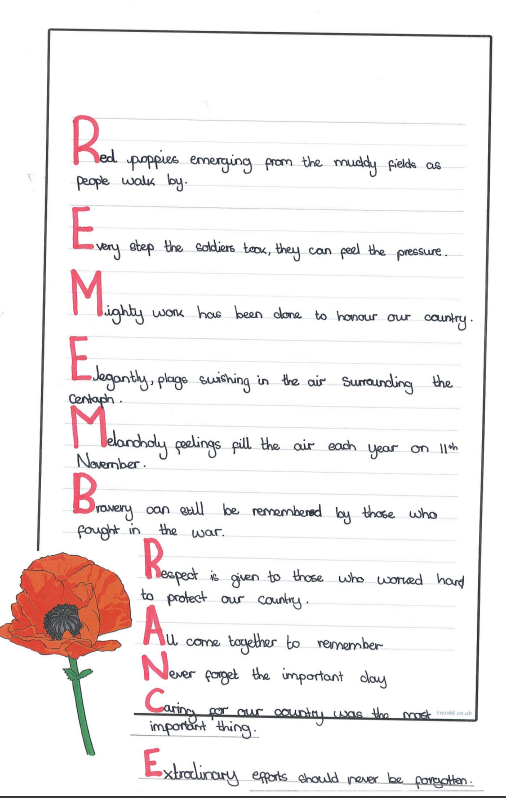 Red poppies emerging from the muddy fields as
people walk by.
Every step the soldiers took, they can feel the pressure.
Mighty work has been done to honour our country.
Elegantly, flags swishing in the air surrounding the
Centaph.
Melancholy feelings fill the air each year on 11th
November.
Bravery can still be remembered by those who
fought in the war.
Respect is given to those who worked hard
to protect our country.
All come together to remember
Never forget the important day
Caring for our country was the most
important thing.
twinkl.co.uk
Extrodinary efforts should never be forgotten.